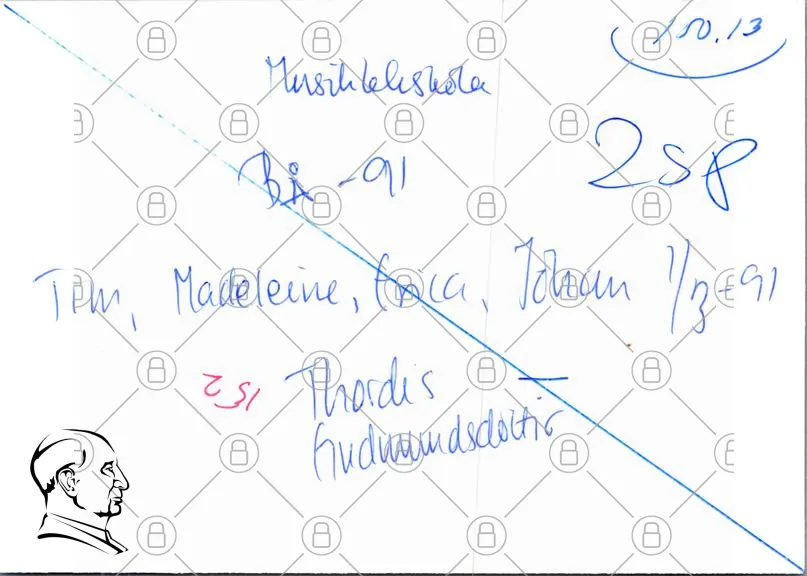 150.13
Musiklekskola
Bå -91
2 sp
Tim, Madeleine, Erica, Johan 1/3-91
Thordis
Gudmundsdottir